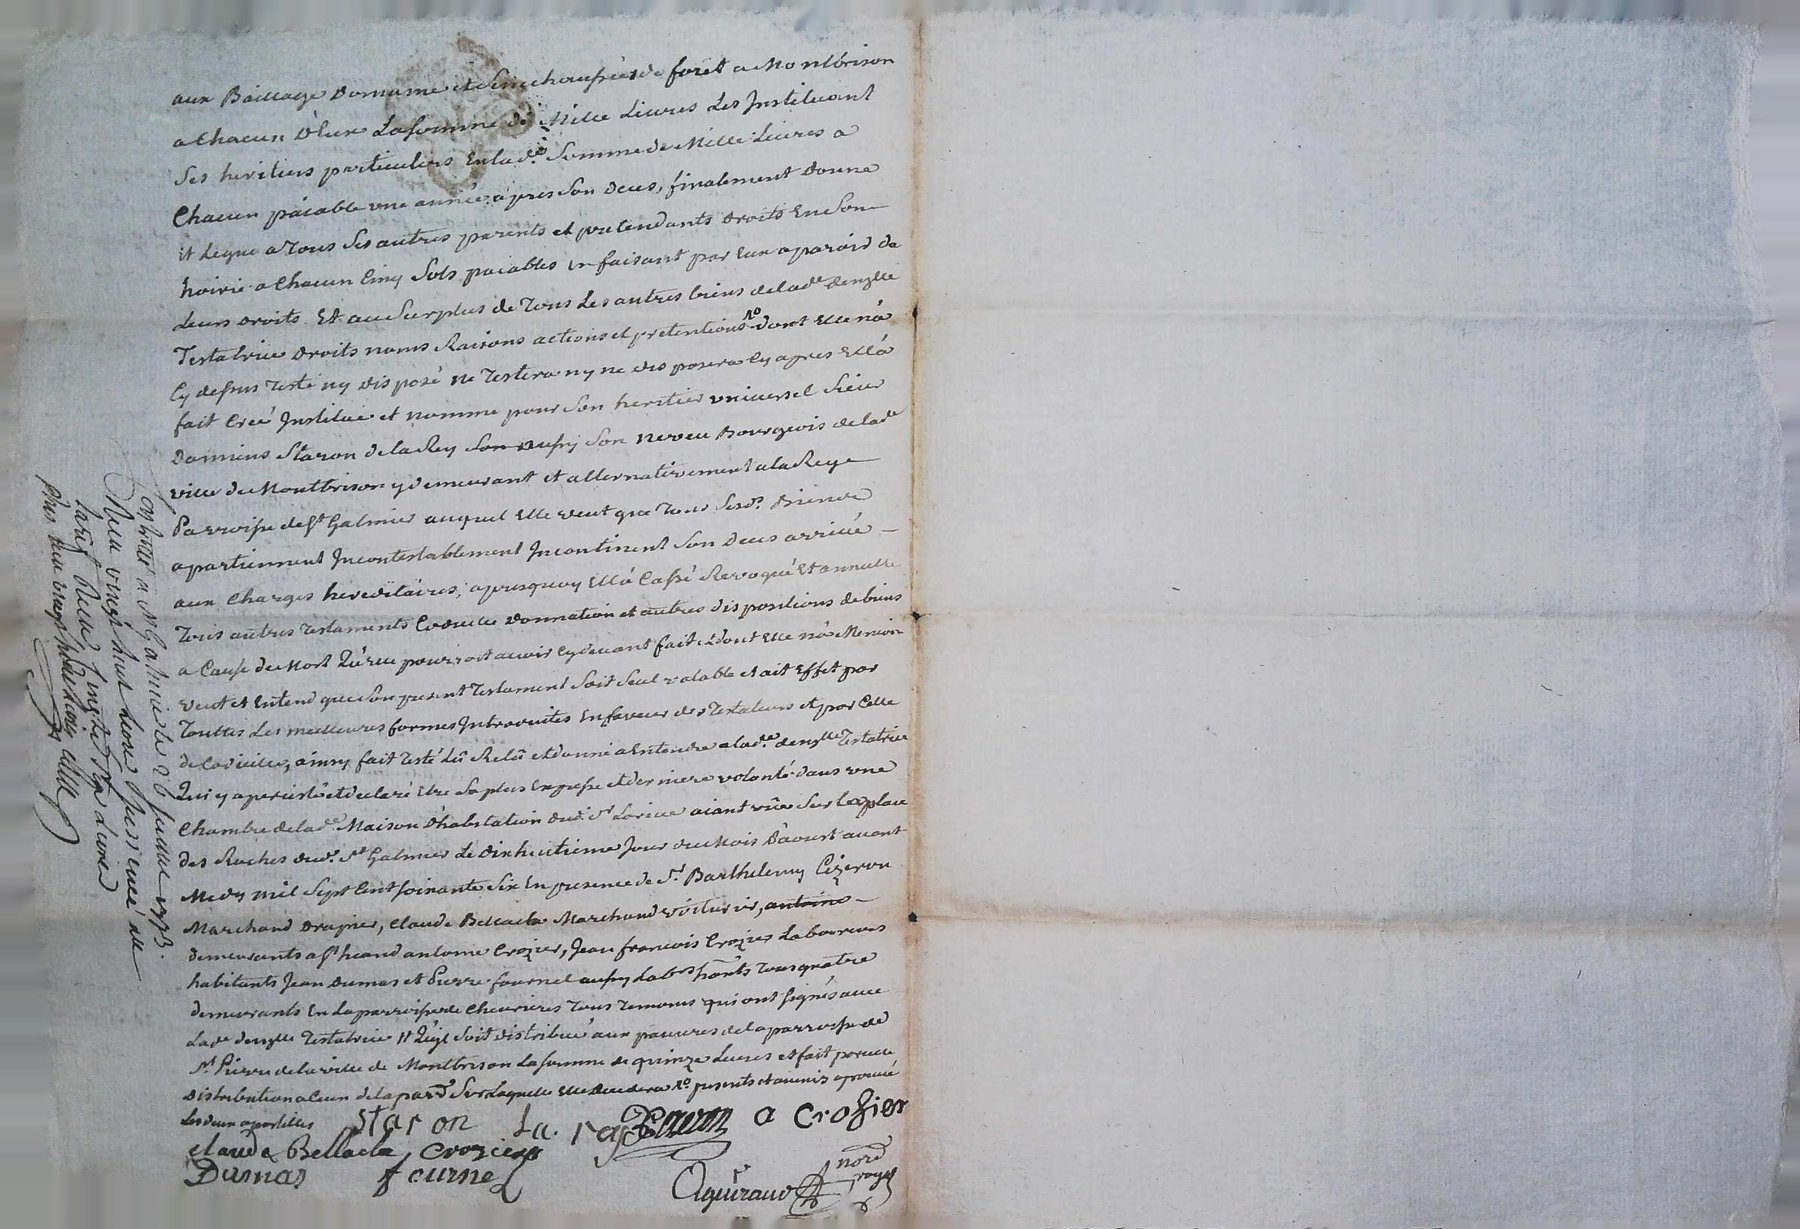 aux Bailliage Domaine et Senechaussée de forêt a Montbrison
a Chacun d'Eux La somme de Mille Livres Les Instituant
Ses heritiers particuliers En lad.e Somme de Mille Livres a
Chacun païable une année apres Son deces, finalement donne
et Legue a Tous Ses autres parents et pretendants droits En Son
hoirie a Chacun Cinq Sols païables en faisant par Eux aparoir de
Leurs droits Et au Surplus de Tous Les autres biens de lad.e demzlle
Testatrice droits noms Raisons actions et pretentions dont Elle n'a
Cy dessus Testé ny disposé ne Testera ny ne disposera Cy apres Ell'a
fait Creé Institué et nommé pour Son heritier universel Sieur
Damiens Staron de la Rey Son Neveu Bourgeois de lad.e
ville de Montbrison y demeurant et alternativement a la Reye
Parroisse de St Galmier auquel Elle veut que Tous Sesd. Biens
apartiennent Incontestablement Incontinent Son deces arrivé
aux Charges hereditaires, apres quoy Ell'a Cassé Revoqué Et annullé
Tous autres Testaments Codicille donnation et autres dispositions de biens
a Cause de Mort Qu'elle pourroit avoir Cy devant fait dont Elle n'a Memoire
veut et Entend que Son present Testament Soit Seul valable et ait Effet par
Touttes Les meilleures formes Introduites En faveur des Testateurs et par Celle
de Codicille, ainsy fait Testé Lû Relû et donné a Entendre a lad.e demzlle Testatrice
Qui y a persisté et declaré Etre Sa plus Expresse et derniere volonté dans une
Chambre de lad.e Maison d'habitation dud. Sr aiant vüe Sur la place
des Roches dud. St Galmier Le dixhuitieme Jour du Mois D'aoust avant
Midy mil Sept Cent Soixante Six En presence de Sr Barthelemy Cizeron
Marchand drapier, Claude Bellacla Marchand voiturier, antoine
demeurants a St heand antoine Crozier, Jean françois Crozier Laboureurs
habitants Jean Dumas et Pierre fournel aussy Labrs hants Tous quatre
demeurants En La parroisse de Chevrieres Tous Temoins qui ont Signés avec
Lad.e demzlle Testatrice Soit distribué aux pauvres de la parroisse de
St Pierre de la ville de Montbrison La Somme de quinze Livres et fait
distribution presents et avenir aprouvé
Les deux apostilles
Staron La rey Cizeron a Crozier
claude Bellacla, Crozier
Dumas fournel
Aguiraud nore royal
St Galmier le 26 1773
Reçu vingt huit Livres
tarif Reçu Livres
plus reçu vingt